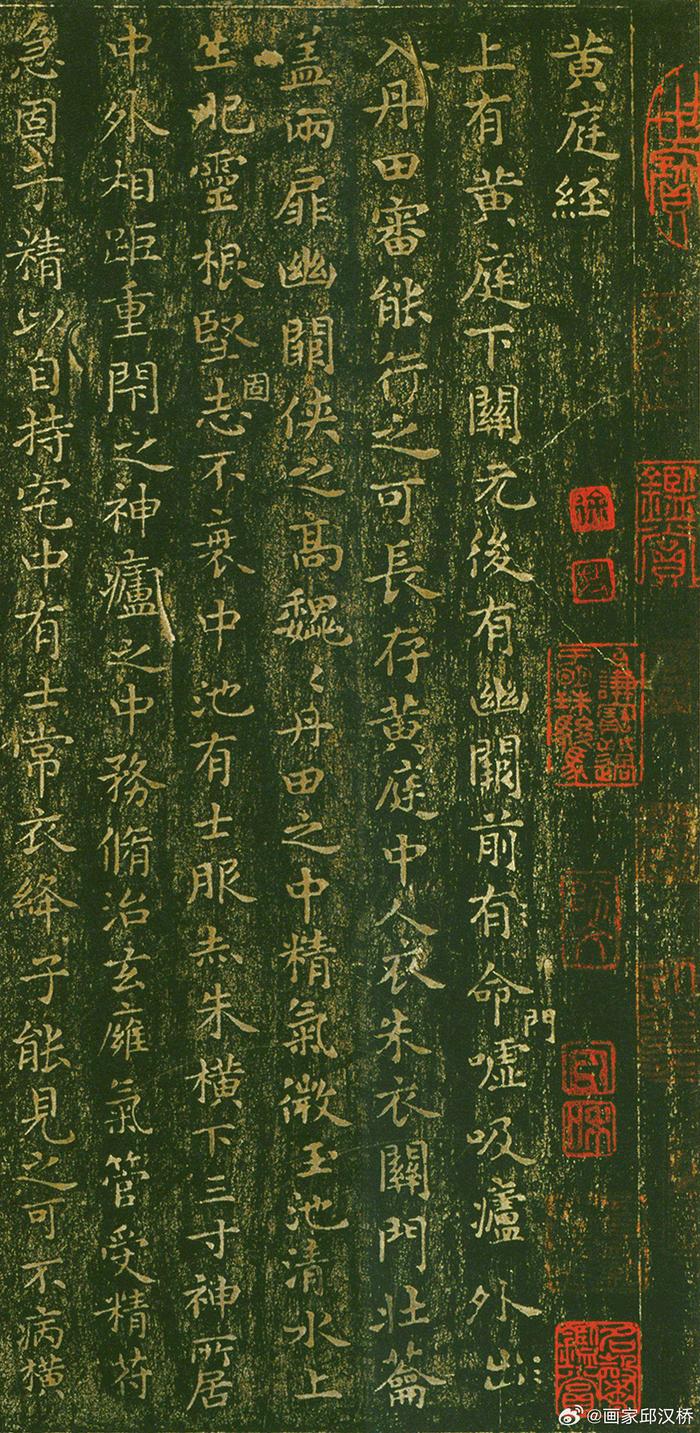 黄庭经
上有黄庭下關元後有幽闕前有命門嘘吸廬外出
入丹田審能行之可長存黄庭中人衣朱衣關門壯籥
盖兩扉幽闕俠之高魏〻丹田之中精氣微玉池清水上
生肥靈根堅固志不衰中池有士服赤朱橫下三寸神所居
中外相距重閇之神廬之中務脩治玄廱氣管受精苻
急固子精以自持宅中有士常衣絳子能見之可不病橫
鑑賞
@画家邱汉桥